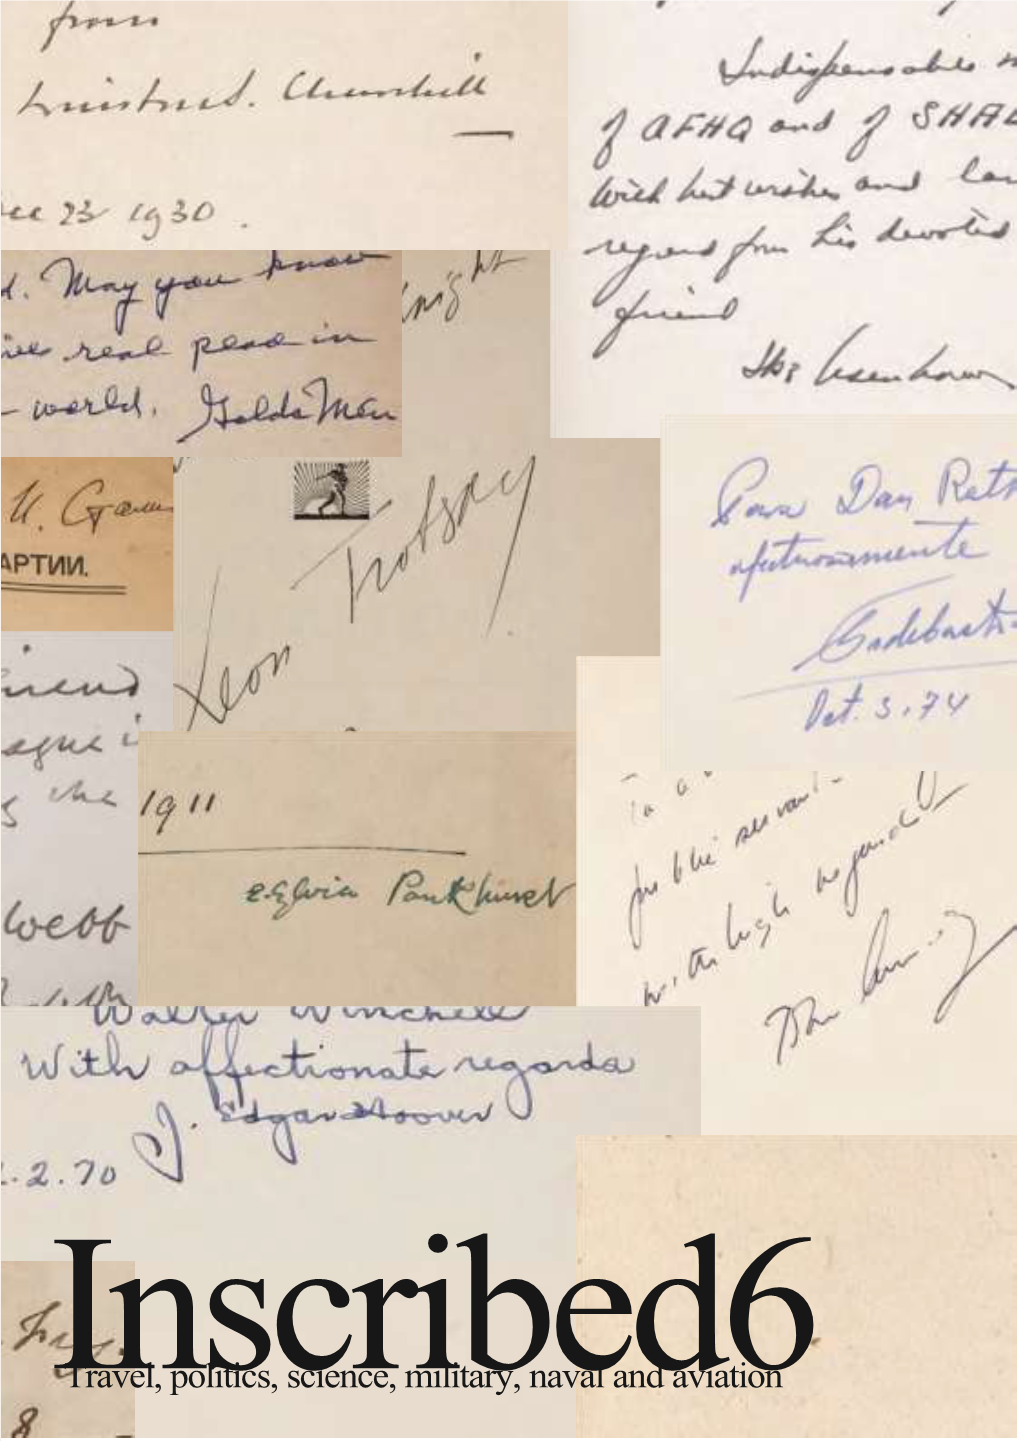 from
Winston S. Churchill
23 1930.
Indispensable
of AFHQ and of
With best wishes and
regard from his devoted
friend
Ike Eisenhower
d. May you know
real peace in
world. Golda Meir
И. Сталин
АРТИИ.
Leon Trotsky
Para Dan
afectuosamente
Oct. 3. 74
friend
the
Webb
1911
E. Sylvia Pankhurst
public servant
with high regard
Walter Winchell
With affectionate regards
J. Edgar Hoover
.2.70
8
Inscribed6
Travel, politics, science, military, naval and aviation